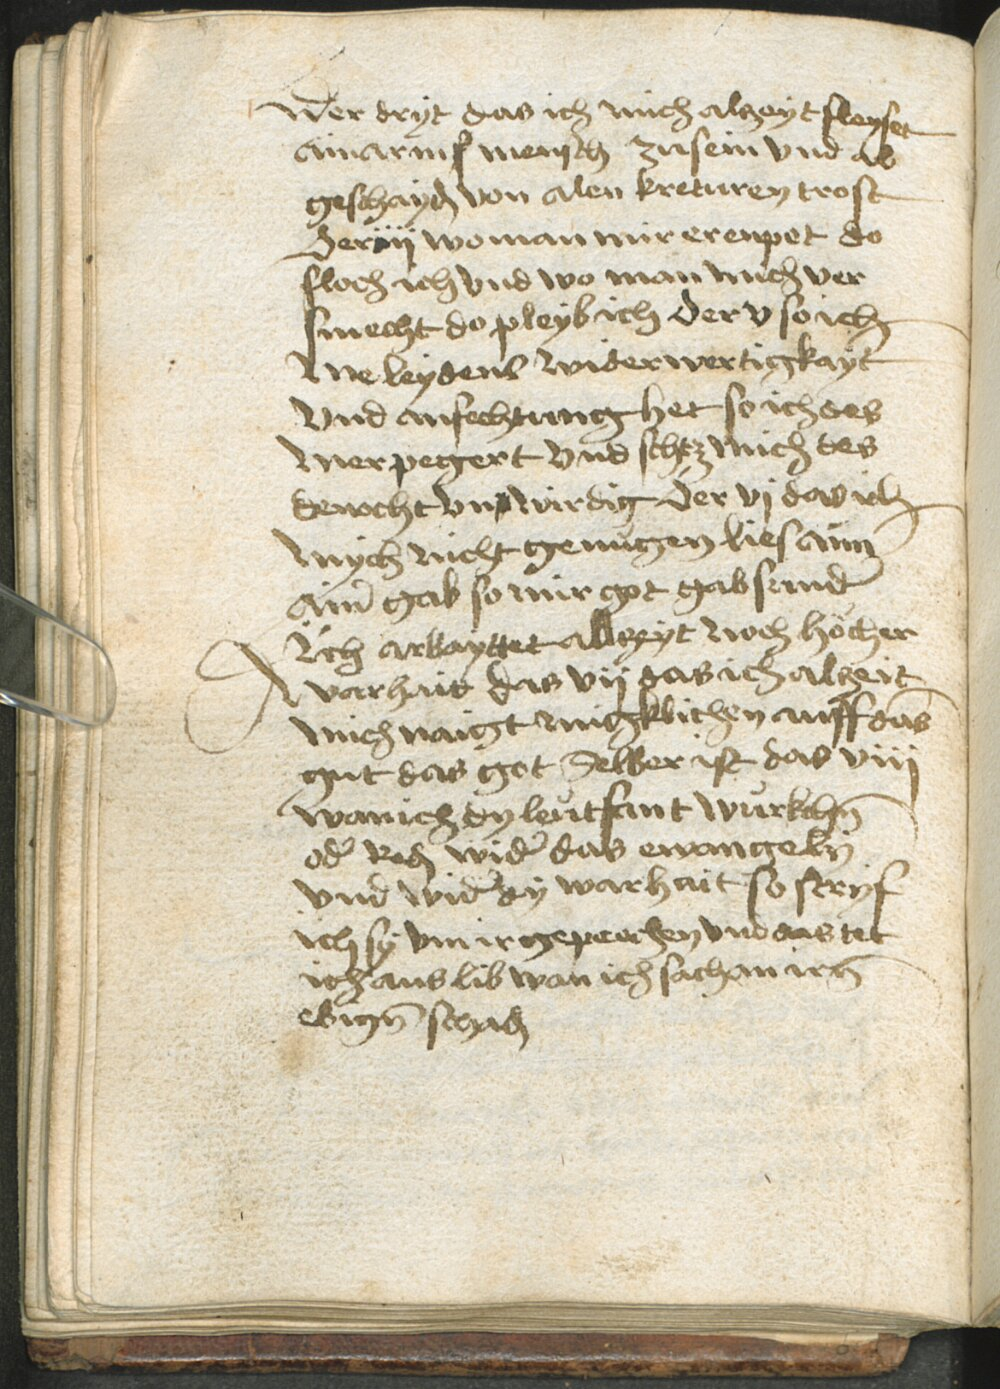 Der dryt das ich mich alzeyt fleyset
ain armß mensch zu sein vnd ab
geschayd von alen kreturen trost
Der iiij wo man mir eren pot do
floch ich vnd wo man mich ver
smecht do pleyb ich Der v so ich
me leydens widerwertigkayt
vnd anfechtung het so ich des
mer pegert vnd schtz mich des
denocht vnwirdig Der vj das ich
mych nicht genugen lies ainn
ainr gab so mir got gab sunder
Ich arbayttet alzeyt noch hocher
warhait das vij das ich alzeit
mich naigt auff das
gut das got selber ist das viij
wan ich dy leut fant wurkchn
oder Red wider das ewangely
vnd wider dy warhait so stryf
ich sy vm ir geprechen vnd das tet
ich aus lib wan ich sach an irn
ebign schad